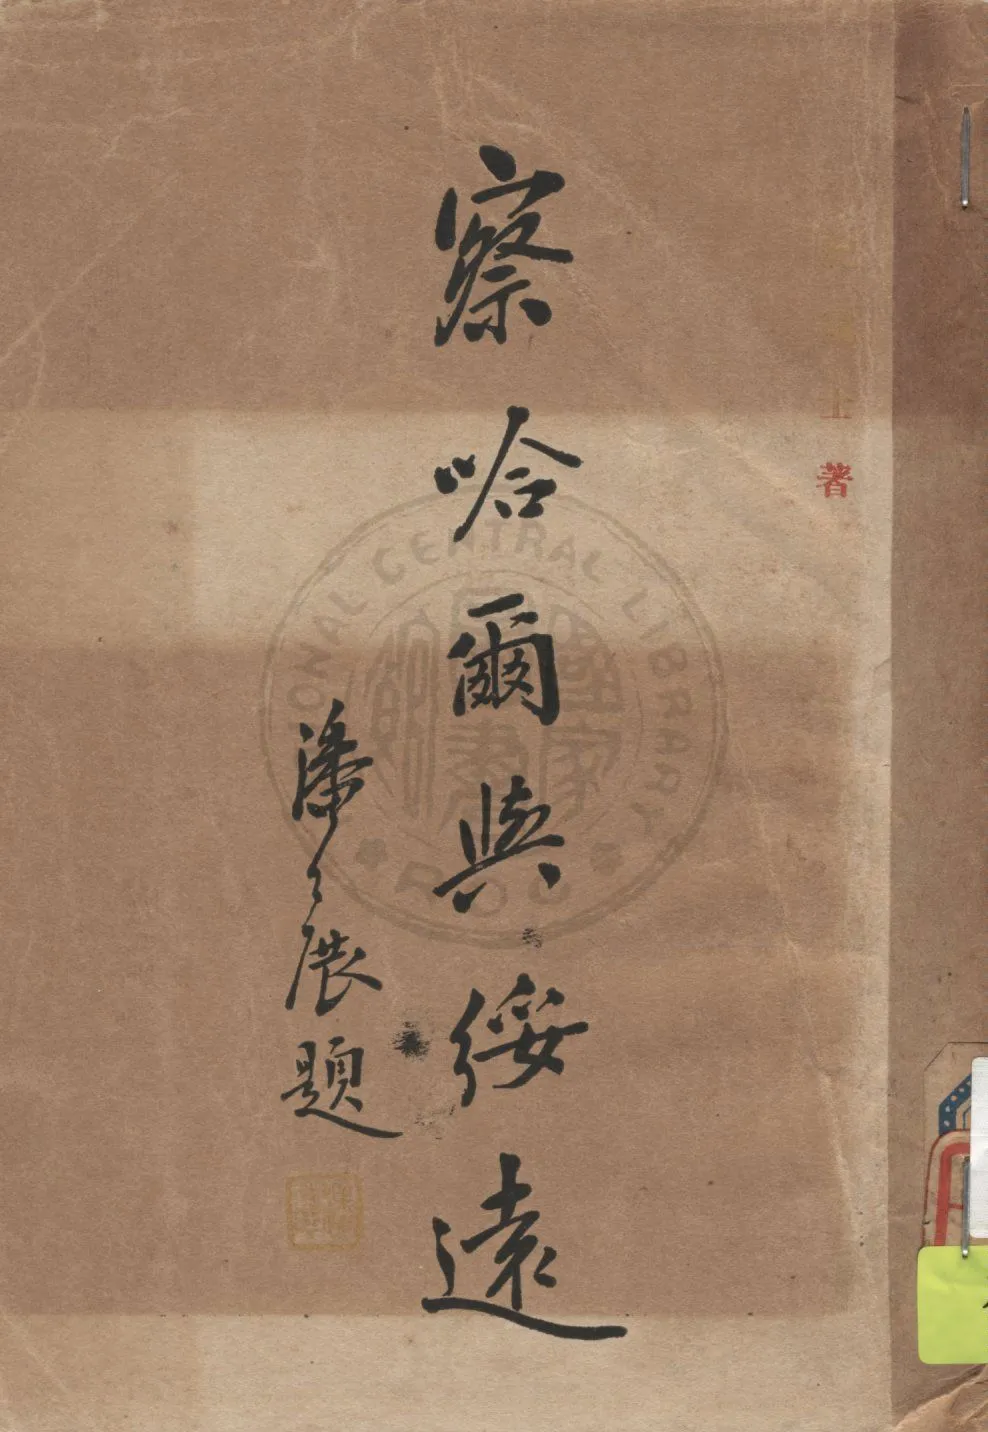 著
察哈爾與綏遠
潘公展題
NATIONAL CENTRAL LIBRARY
ROC
國家圖書館